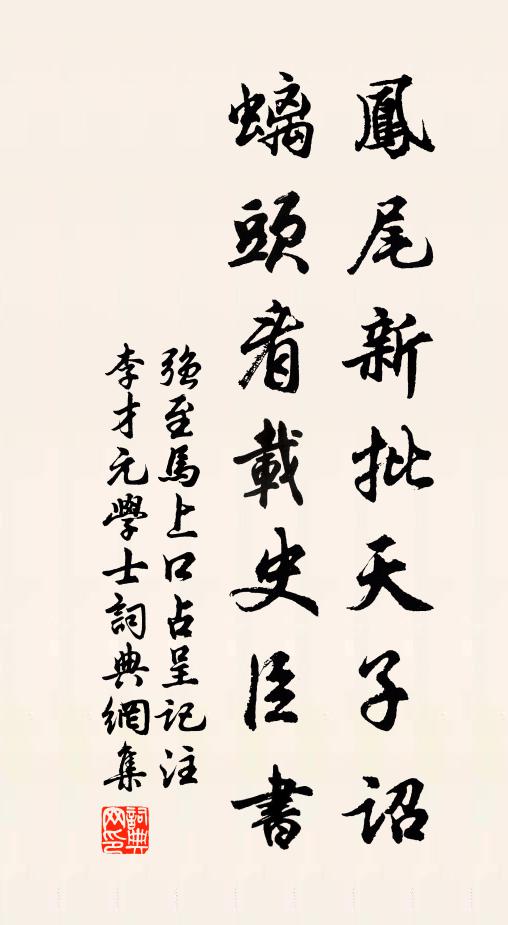 鳳尾新批天子詔
螭頭看載史臣書
強至馬上口占呈記注
李才元學士詞典網集
詞典網印